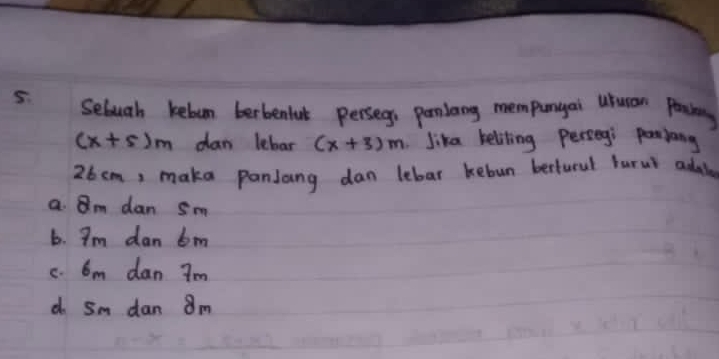 5. Sebuah kebun berbentuk persegi panjang mempunyai ukuran panjang
(x+5)m dan lebar (x+3)m. Jika keliling persegi panjang
26cm, maka panjang dan lebar kebun berturut turut adalah
a. 8m dan 5m
b. 7m dan 6m
c. 6m dan 7m
d. 5m dan 8m